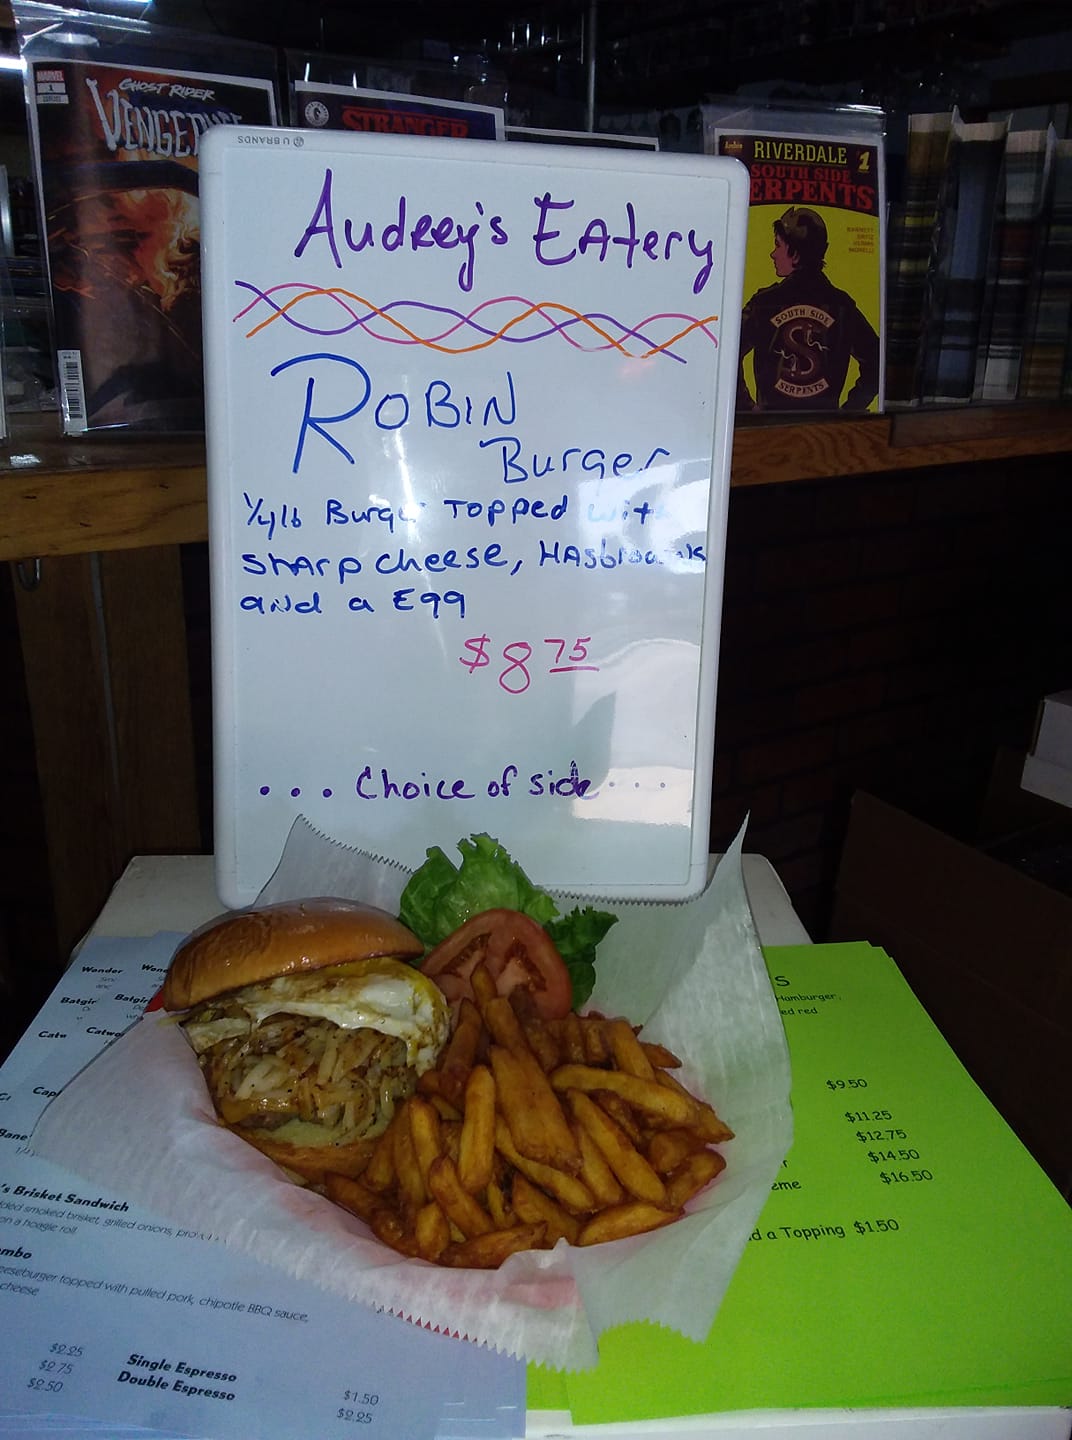 MARVEL
1
GHOST RIDER
STRANGER
U BRANDS
Archie
RIVERDALE
#1
SOUTH SIDE
SERPENTS
SOUTH SIDE
SERPENTS
Audrey's Eatery
ROBIN
Burger
1/4 lb Burger Topped with
sharp cheese, HAsbrowns
and a Egg
$8 75
... Choice of side ...
Batgir
Batgir
Catw
Catwo
Cap
Bane
's Brisket Sandwich
smoked brisket, grilled onions,
on a hoagie roll
ombo
eeseburger topped with pulled pork, chipotle BBQ sauce,
cheese
$2.25
$2.75
$2.50
Single Espresso $1.50
Double Espresso $2.25
S
Hamburger,
ed red
$9.50
$11.25
$12.75
r $14.50
eme $16.50
d a Topping $1.50